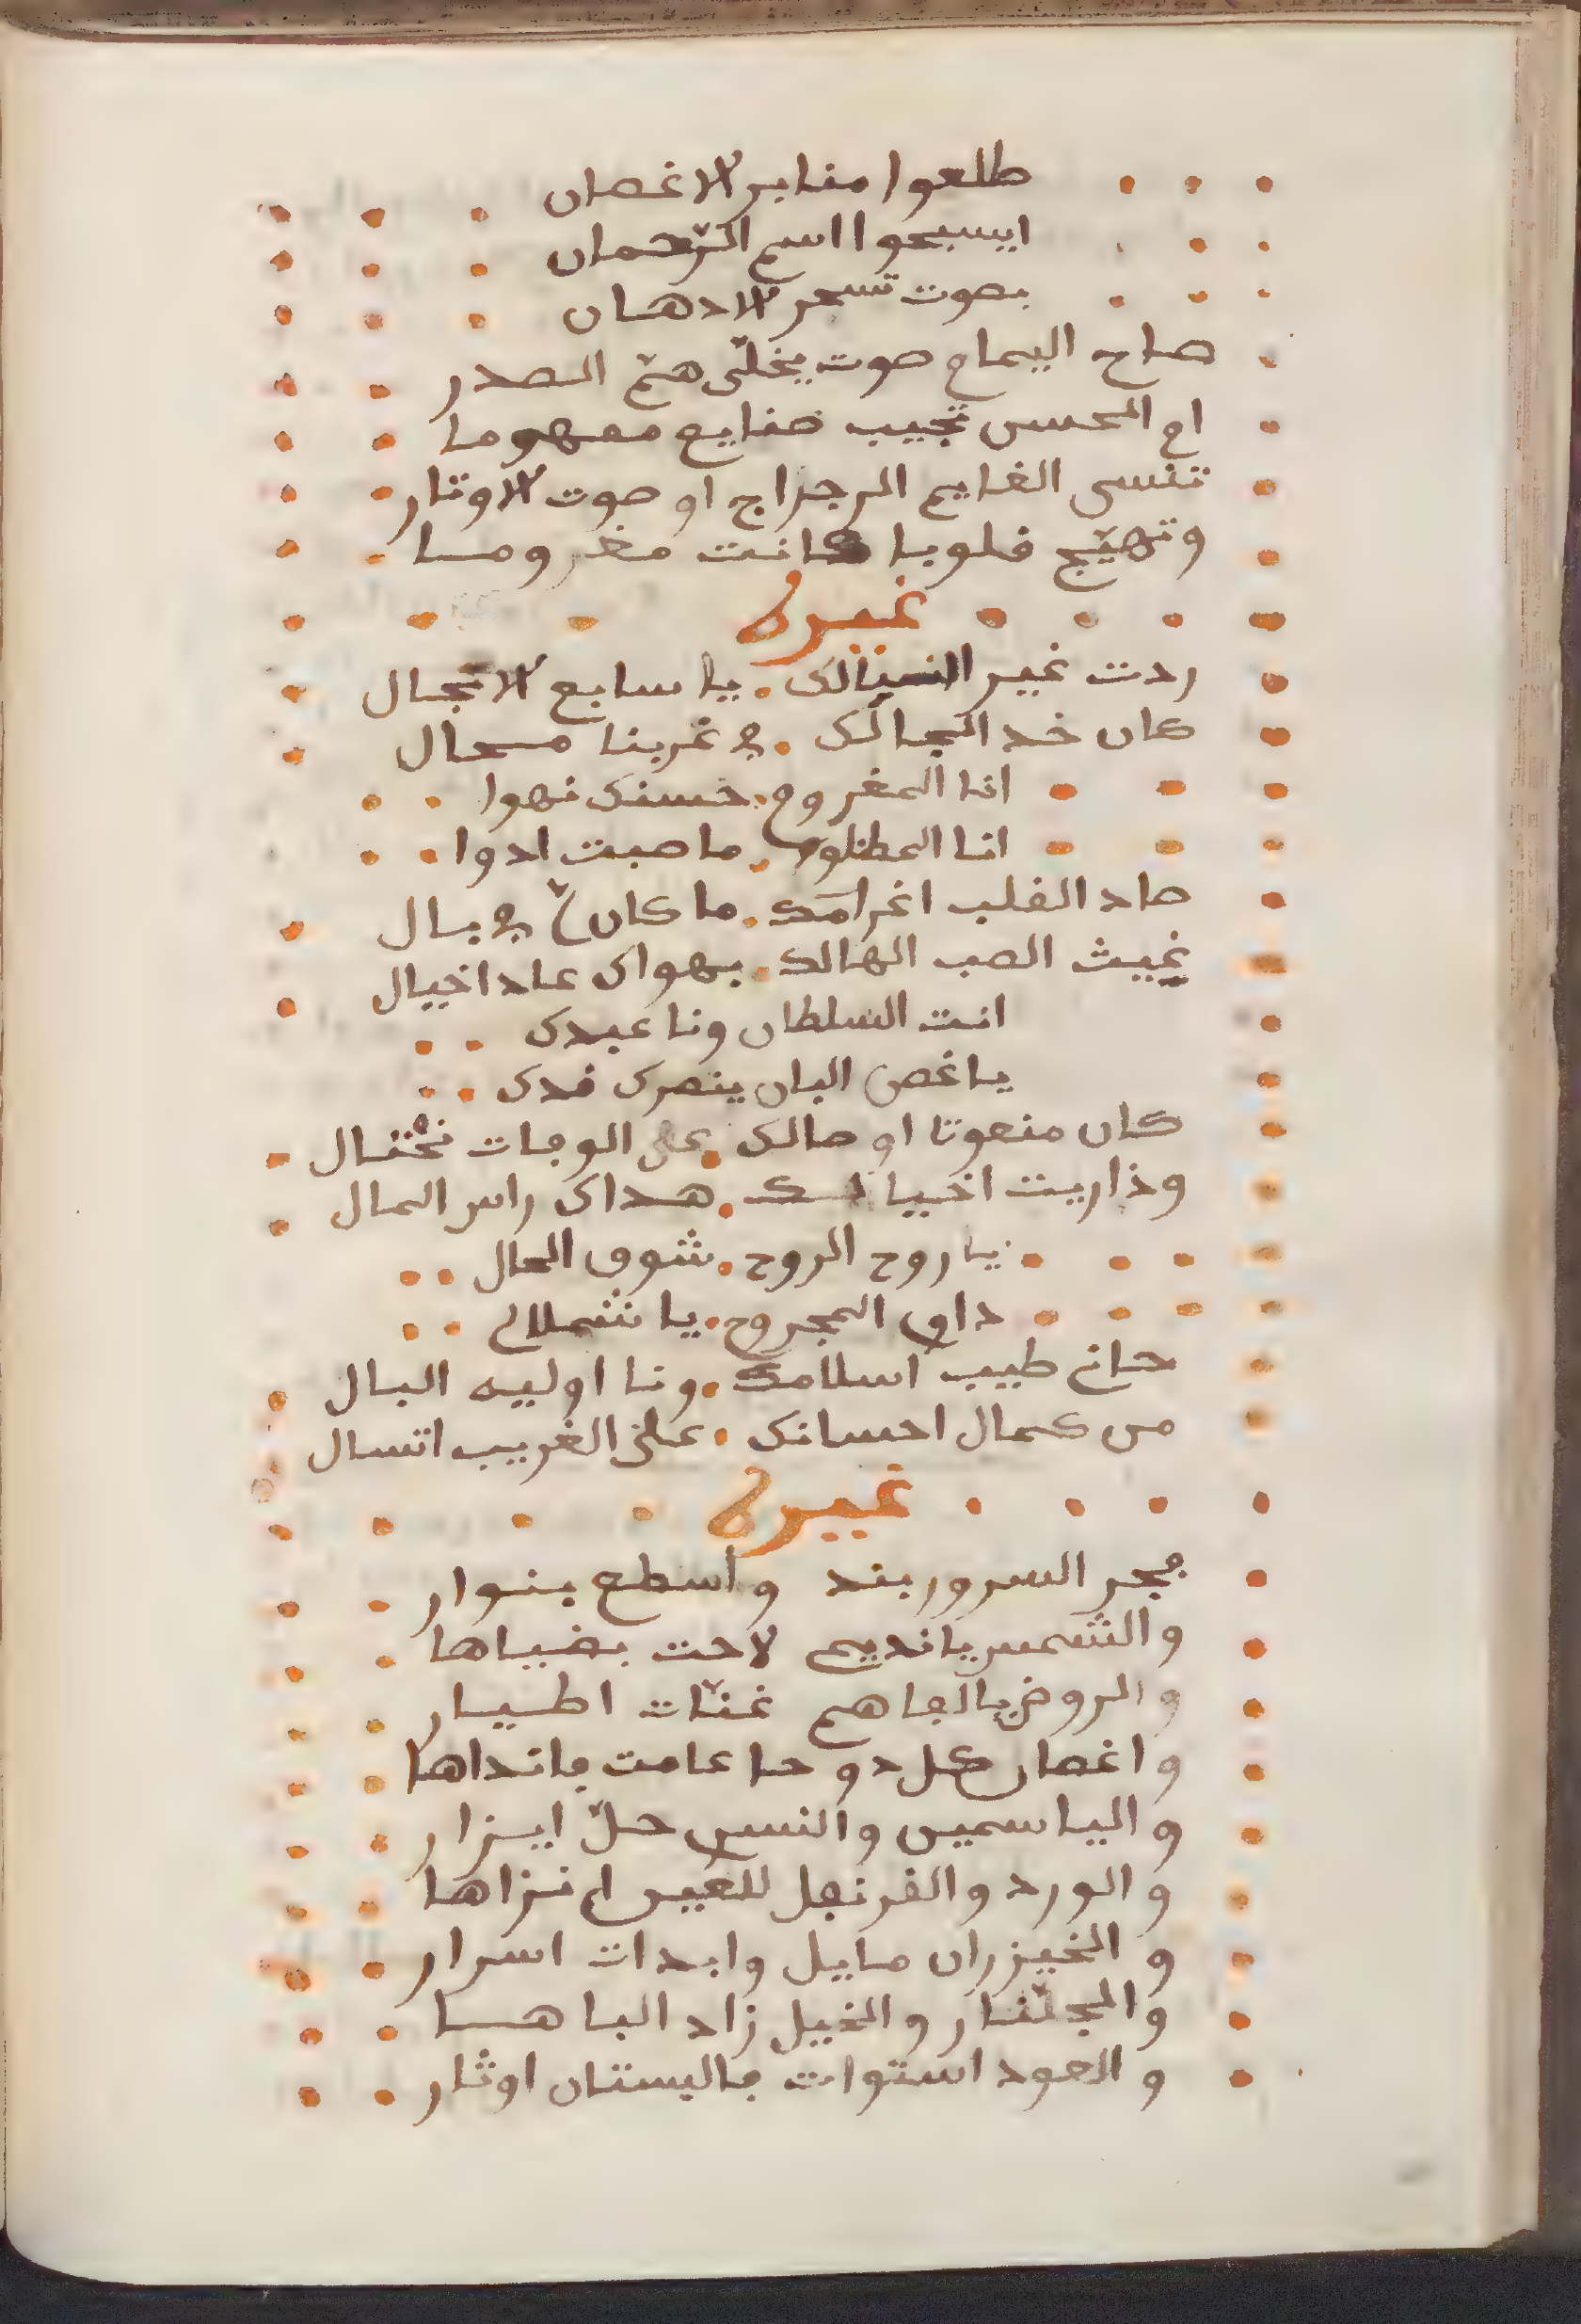 طلعوا منابر الاغصان
ايسبحوا اسم الرّحمان
بصوت تسحر الادهان
صاح اليمام صوت يخلّى همّ الصدر
ام الحسن تجيب صنايع مفهوما
تنسى الغايم الرجراج او صوت الاوتار
وتهيّج قلوبا كانت مغرومسا
غيره
ردت غير انسالك . يا سابع الانجال
كان خد الجالك . في غربنا محال
انا المغروم . حسنك نهوا
انا المظلوم . ما صبت ادوا
صاد القلب اغرامك . ما كان لّ في بال
غيث الصب الهالك . بهواك عاد اخيال
انت السلطان ونا عبدك
يا غصن البان ينصرك قدك
كان منعوتا او صالك . على الوجات نختال
وذا ريت اخيالك . هداك راس المال
يا روح الروح . شوف الحال
داوي المجروح . يا شملال
حانى طبيب اسلامك . ونا اوليه البال
من كمال احسانك . على الغريب اتسال
غيره
فجر السرور بند واسطع بنوار
والشمس يا نديم لاحت بضياها
والروض يا الفاهم غنّات اطيار
واغصان كل دوحا عامت فانداها
والياسمين والنسر حلّ ايزار
والورد والقرنفل للعين ام نزاها
والخيزران مايل وابدات اسرار
والجلّنار والخيل زاد الباهسا
والعود استوات فالبستان اوثار